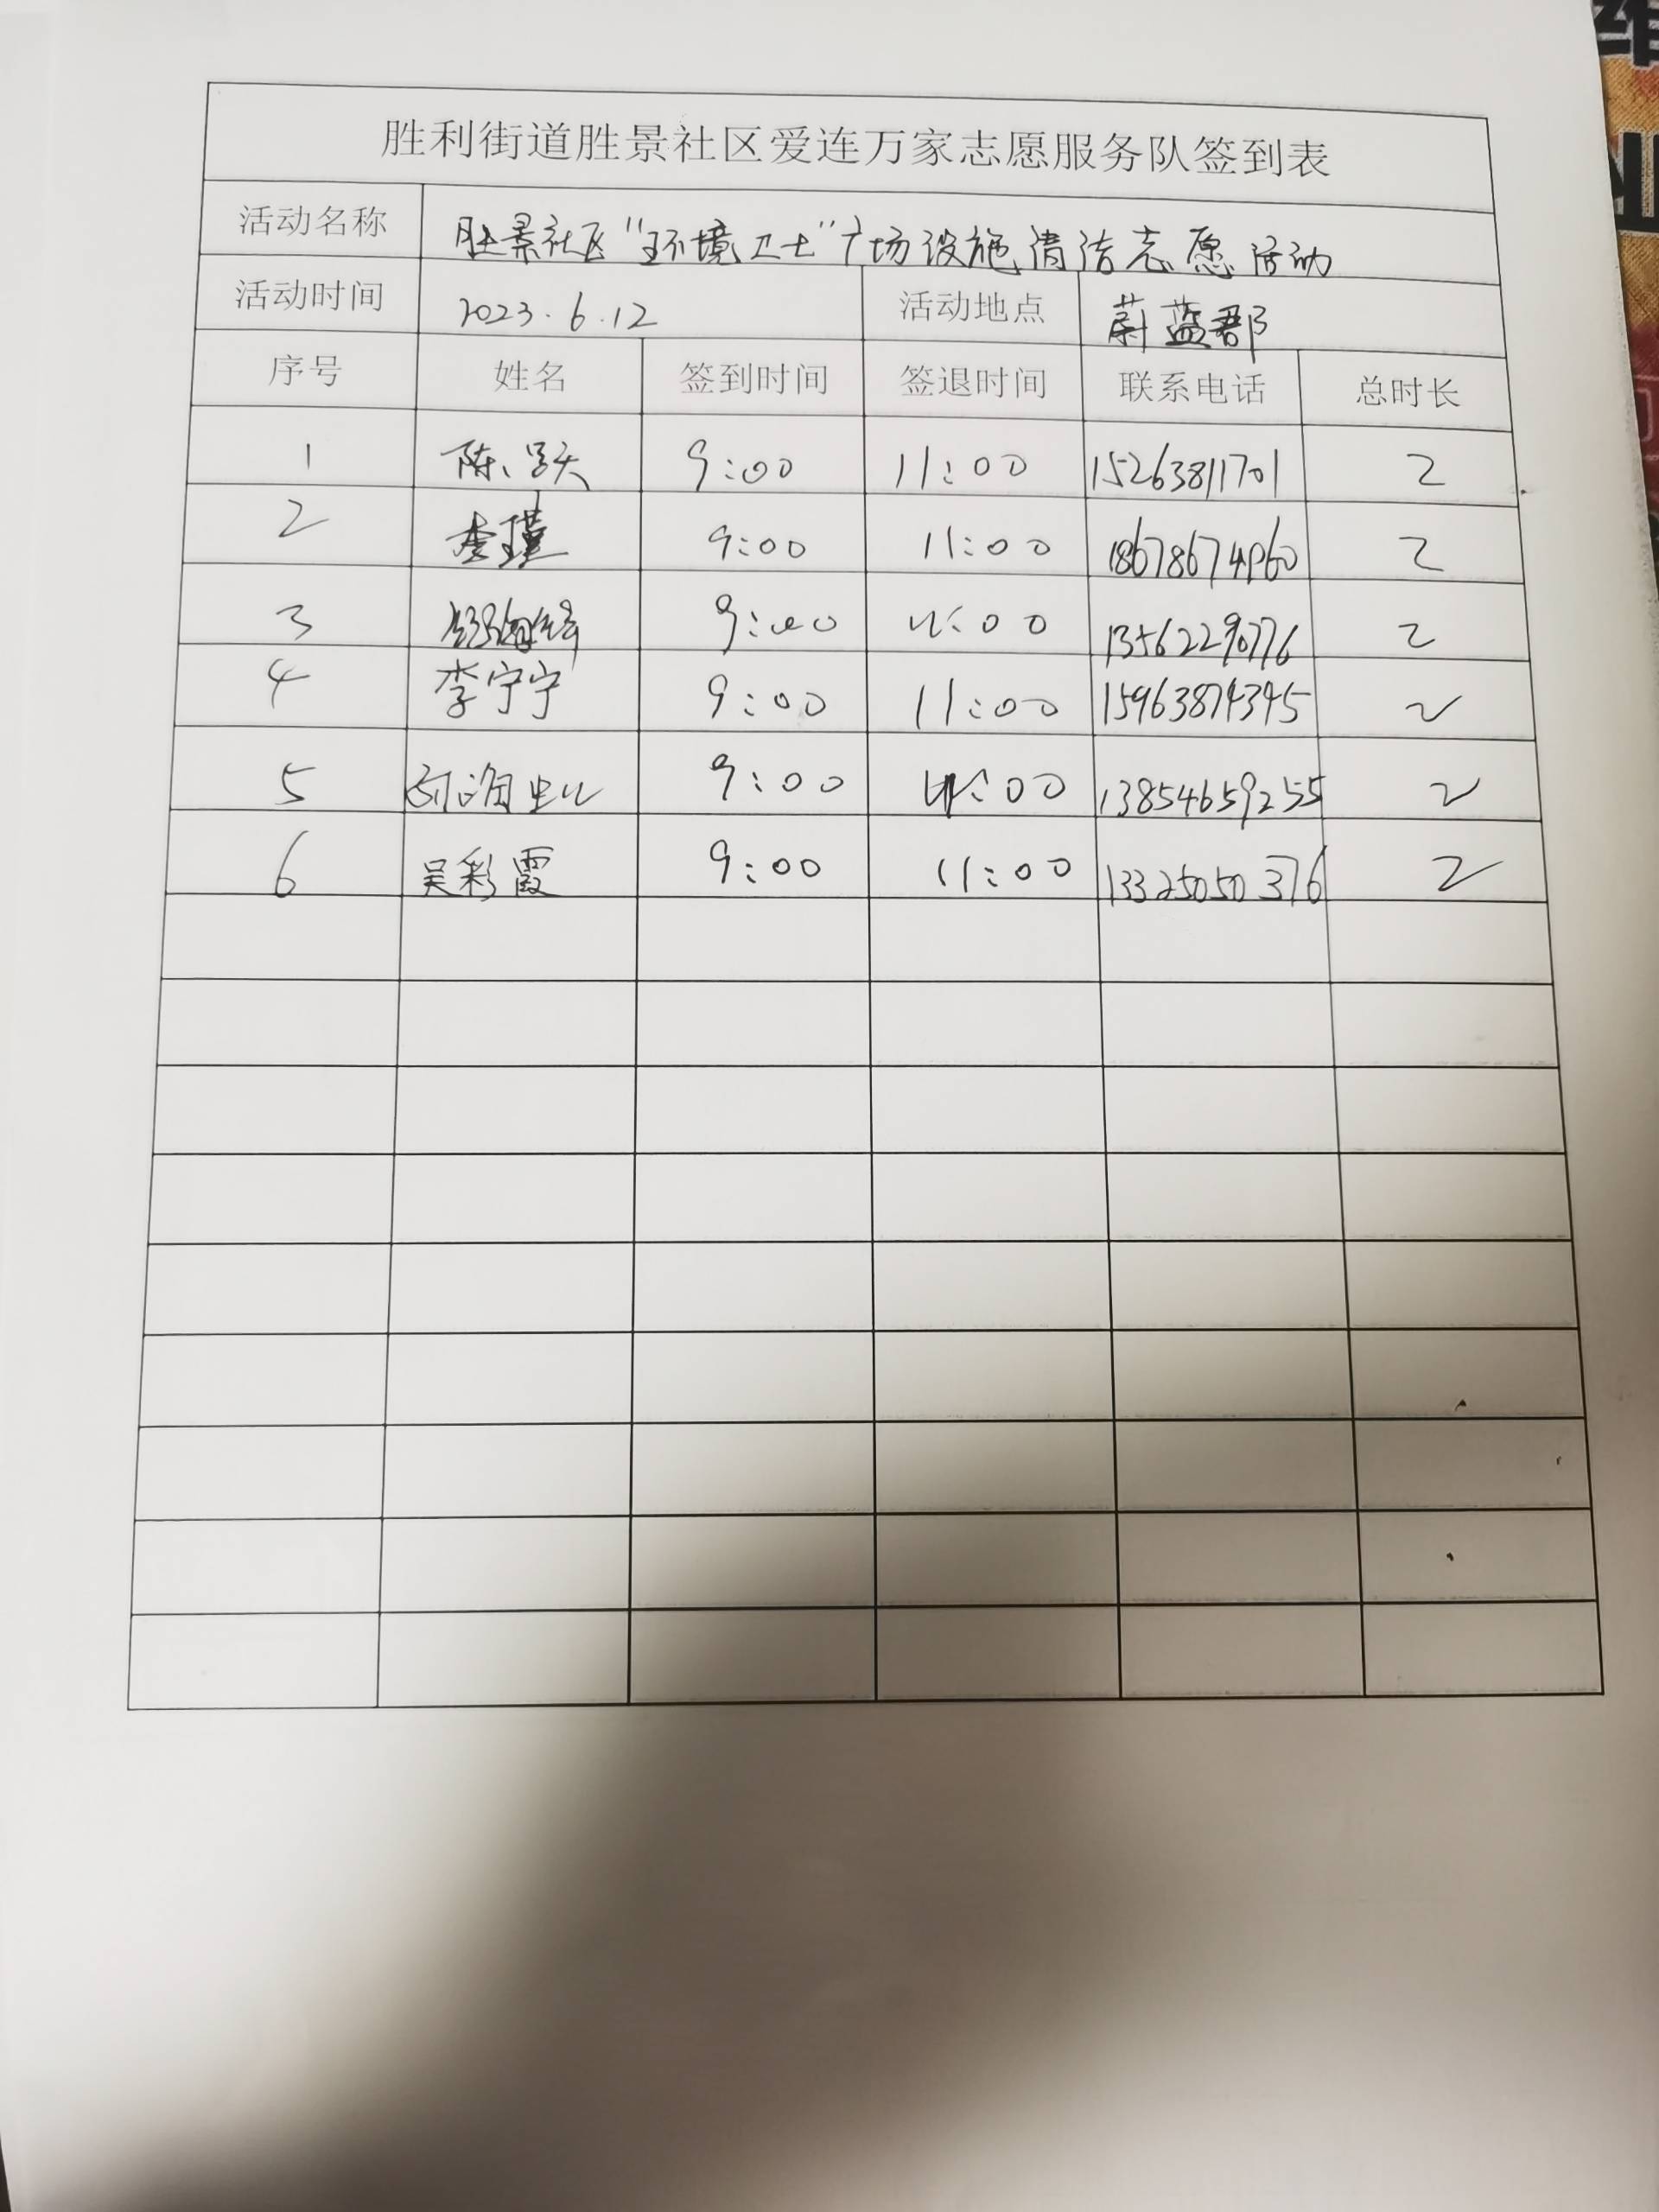 胜利街道胜景社区爱连万家志愿服务队签到表
活动名称 胜景社区“环境卫士”广场设施清洁志愿活动
活动时间 2023.6.12 活动地点 蔚蓝郡
序号 姓名 签到时间 签退时间 联系电话 总时长
1 陈 9:00 11:00 15263811701 2
2 李瑾 9:00 11:00 2
3 9:00 11:00 13562290776 2
4 李宁宁 9:00 11:00 2
5 9:00 11:00 13854659255 2
6 吴彩霞 9:00 11:00 13325050376 2